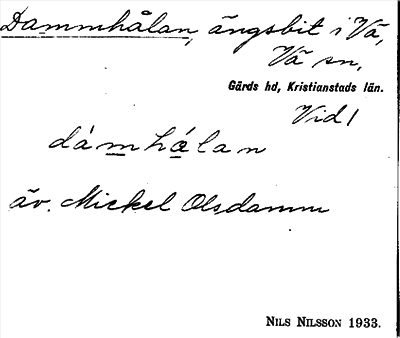 Dammhålan, ängsbit i Vä,
Vä sn,
Gärds hd, Kristianstads län.
Vid 1
dámhålan
äv. Mickel Olsdamm
NILS NILSSON 1933.